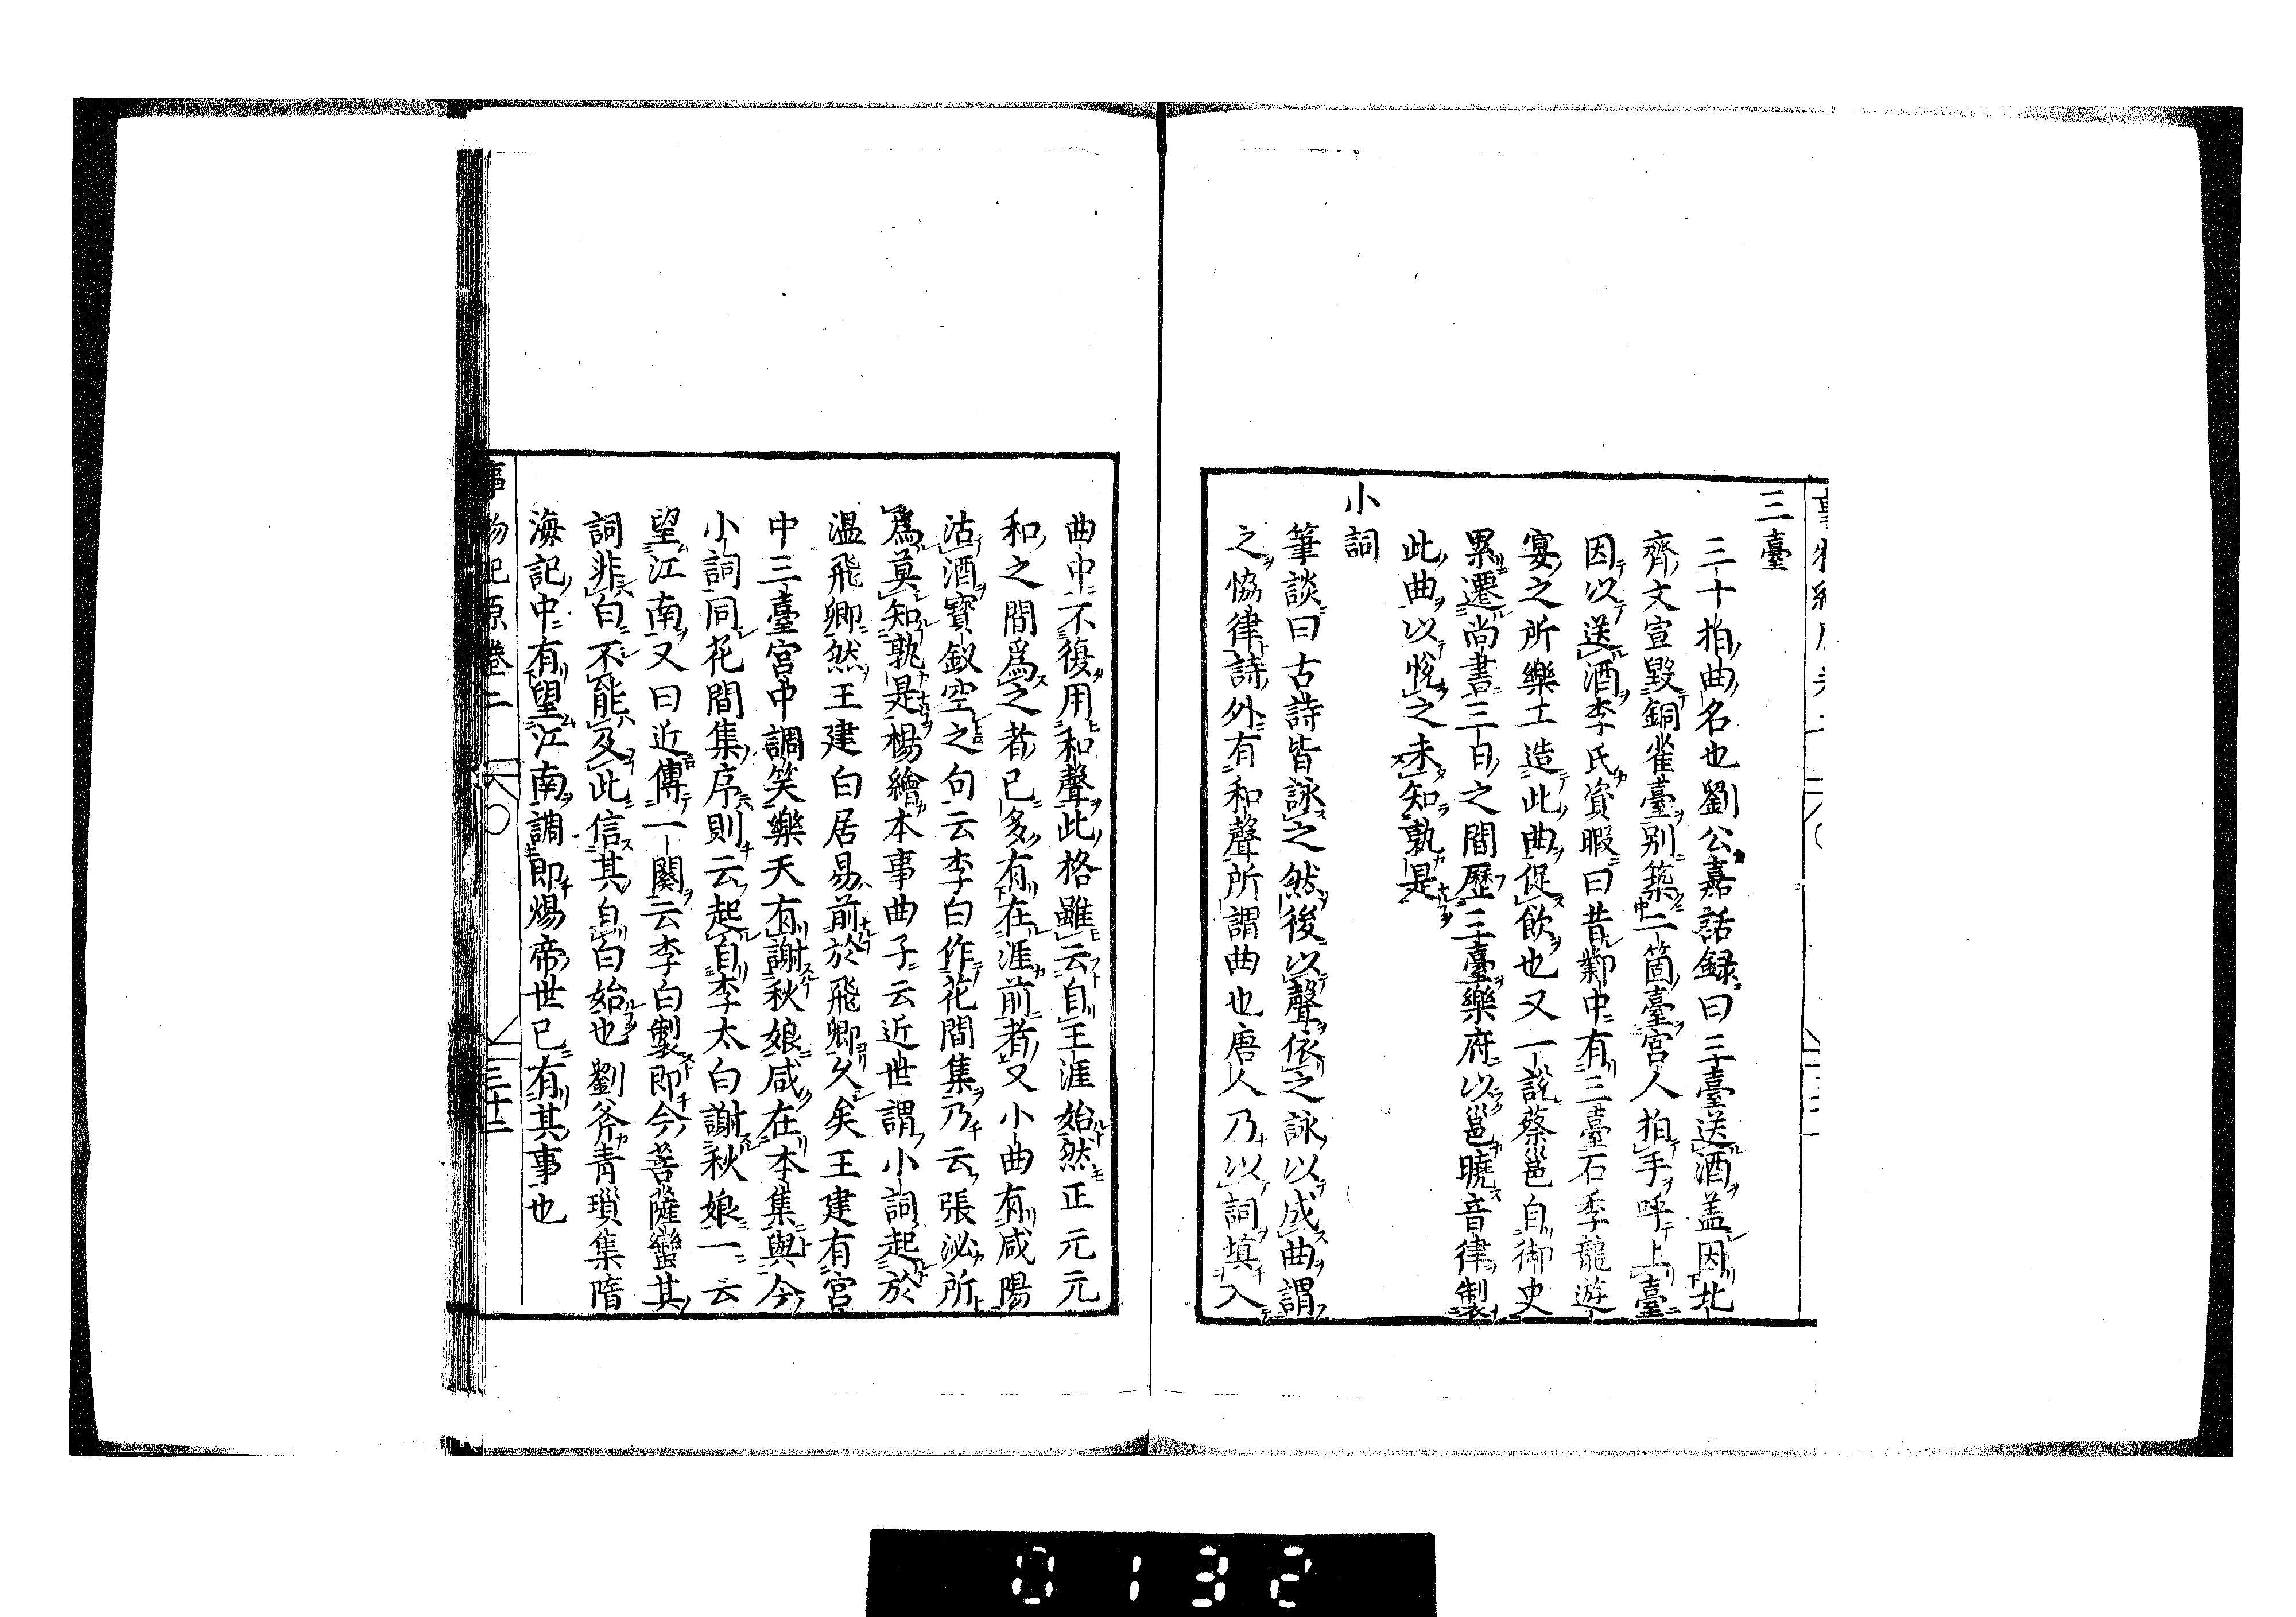 三臺
三十拍曲名也劉公嘉話録曰三臺送酒盖因北
齊文宣毀銅雀臺别築二箇臺宮人拍手呼上臺
因以送酒李氏資暇曰昔鄴中有三臺石季龍遊
宴之所樂工造此曲促飲也又一説蔡邕自御史
累遷尚書三日之間歷三臺樂府以邕曉音律製
此曲以悦之未知孰是
小詞
筆談曰古詩皆詠之然後以聲依之詠以成曲謂
之恊律詩外有和聲所謂曲也唐人乃以詞填入
曲中不復用和聲此格雖云自王涯始然正元元
和之間爲之者已多有在涯前者又小曲有咸陽
沽酒寶釵空之句云李白作花間集乃云張泌所
爲莫知孰是楊繪本事曲子云近世謂小詞起於
温飛卿然王建白居易前於飛卿久矣王建有宮
中三臺宮中調笑樂天有謝秋娘咸在本集與今
小詞同花間集序則云起自李太白謝秋娘一云
望江南又曰近傳一闋云李白製即今菩薩蠻其
詞非白不能及此信其自白始也劉斧青瑣集隋
海記中有望江南調即煬帝世已有其事也
事物紀原卷二 三十二
0132